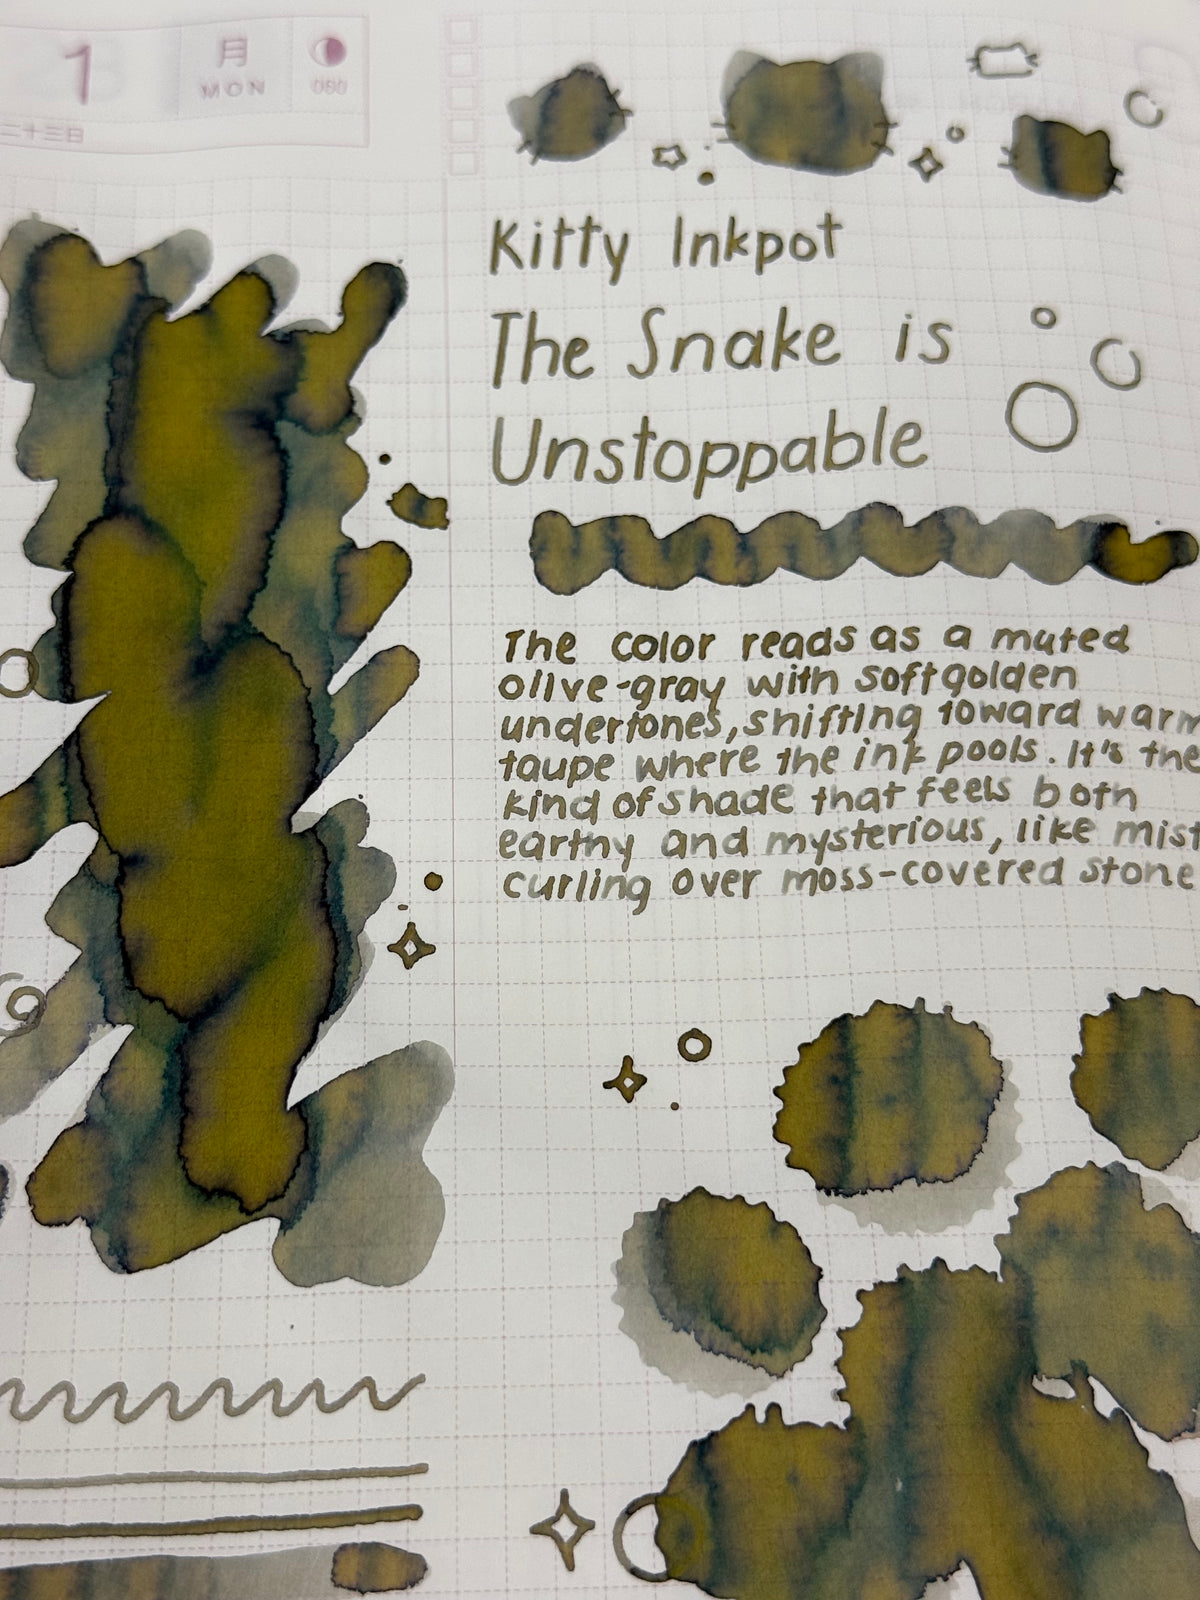 1
月
MON
090
二十三日
Kitty Inkpot
The Snake is
Unstoppable
The color reads as a muted
olive-gray with soft golden
undertones, shifting toward warm
taupe where the ink pools. It's the
kind of shade that feels both
earthy and mysterious, like mist
curling over moss-covered stone